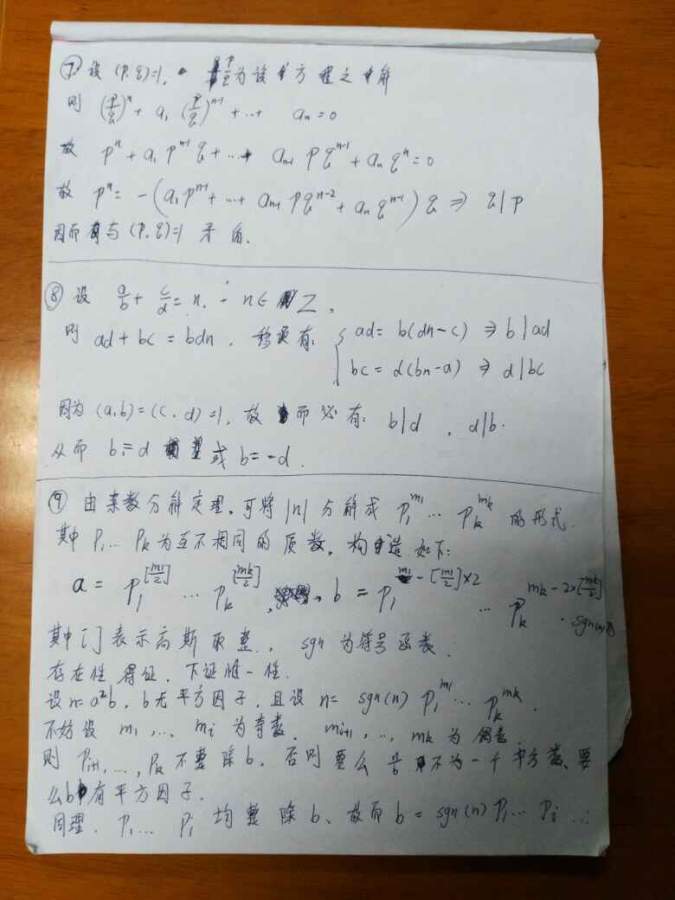 ⑦ 设 (p,q)=1, p/q 为该方程之解
则 (p/q)^n + a₁(p/q)^{n-1} + ... aₙ=0
故 p^n + a₁p^{n-1}q + ... + a_{n-1}pq^{n-1} + aₙq^n = 0
故 p^n = -(a₁p^{n-1} + ... + a_{n-1}pq^{n-2} + aₙq^{n-1})q ⇒ q|p
因而与(p,q)=1 矛盾.
⑧ 设 a/b + c/d = n. n∈Z,
则 ad+bc=bdn, 移项有: { ad=b(dn-c) ⇒ b|ad
bc=d(bn-a) ⇒ d|bc
因为 (a,b)=(c,d)=1, 故而必有: b|d, d|b.
从而 b=d 或 b=-d.
⑨ 由素数分解定理, 可将|n|分解成 p₁^{m₁}...p_k^{m_k} 的形式.
其中 p₁...p_k 为互不相同的质数, 构造如下:
a = p₁^{[m₁/2]} ... p_k^{[m_k/2]}, b = p₁^{m₁-[m₁/2]×2} ... p_k^{m_k-2×[m_k/2]} · sgn(n)
其中[]表示高斯取整, sgn为符号函数.
存在性得证, 下证惟一性.
设 n=a²b, b无平方因子, 且设 n= sgn(n) p₁^{m₁}...p_k^{m_k}.
不妨设 m₁, ..., m_i 为奇数, m_{i+1}, ..., m_k 为偶数.
则 p_{i+1}, ..., p_k 不整除b, 否则要么 不为一个平方数, 要
么b有平方因子.
同理, p₁...p_i 均整除b, 故而 b = sgn(n)p₁...p_i